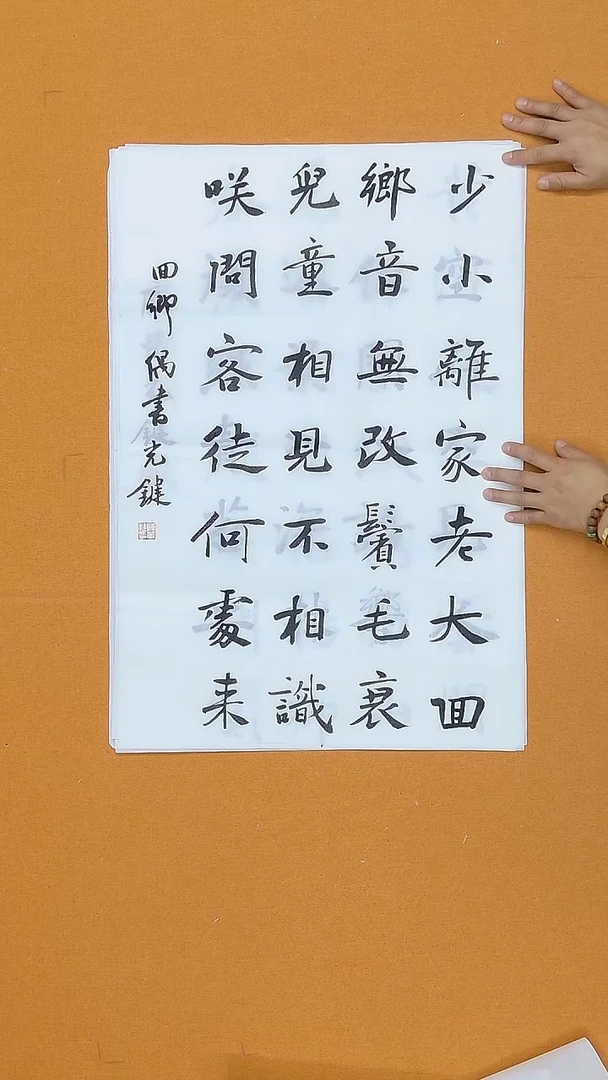 少小離家老大囬
鄉音無改鬢毛衰
兒童相見不相識
咲問客従何處来
回鄉偶書